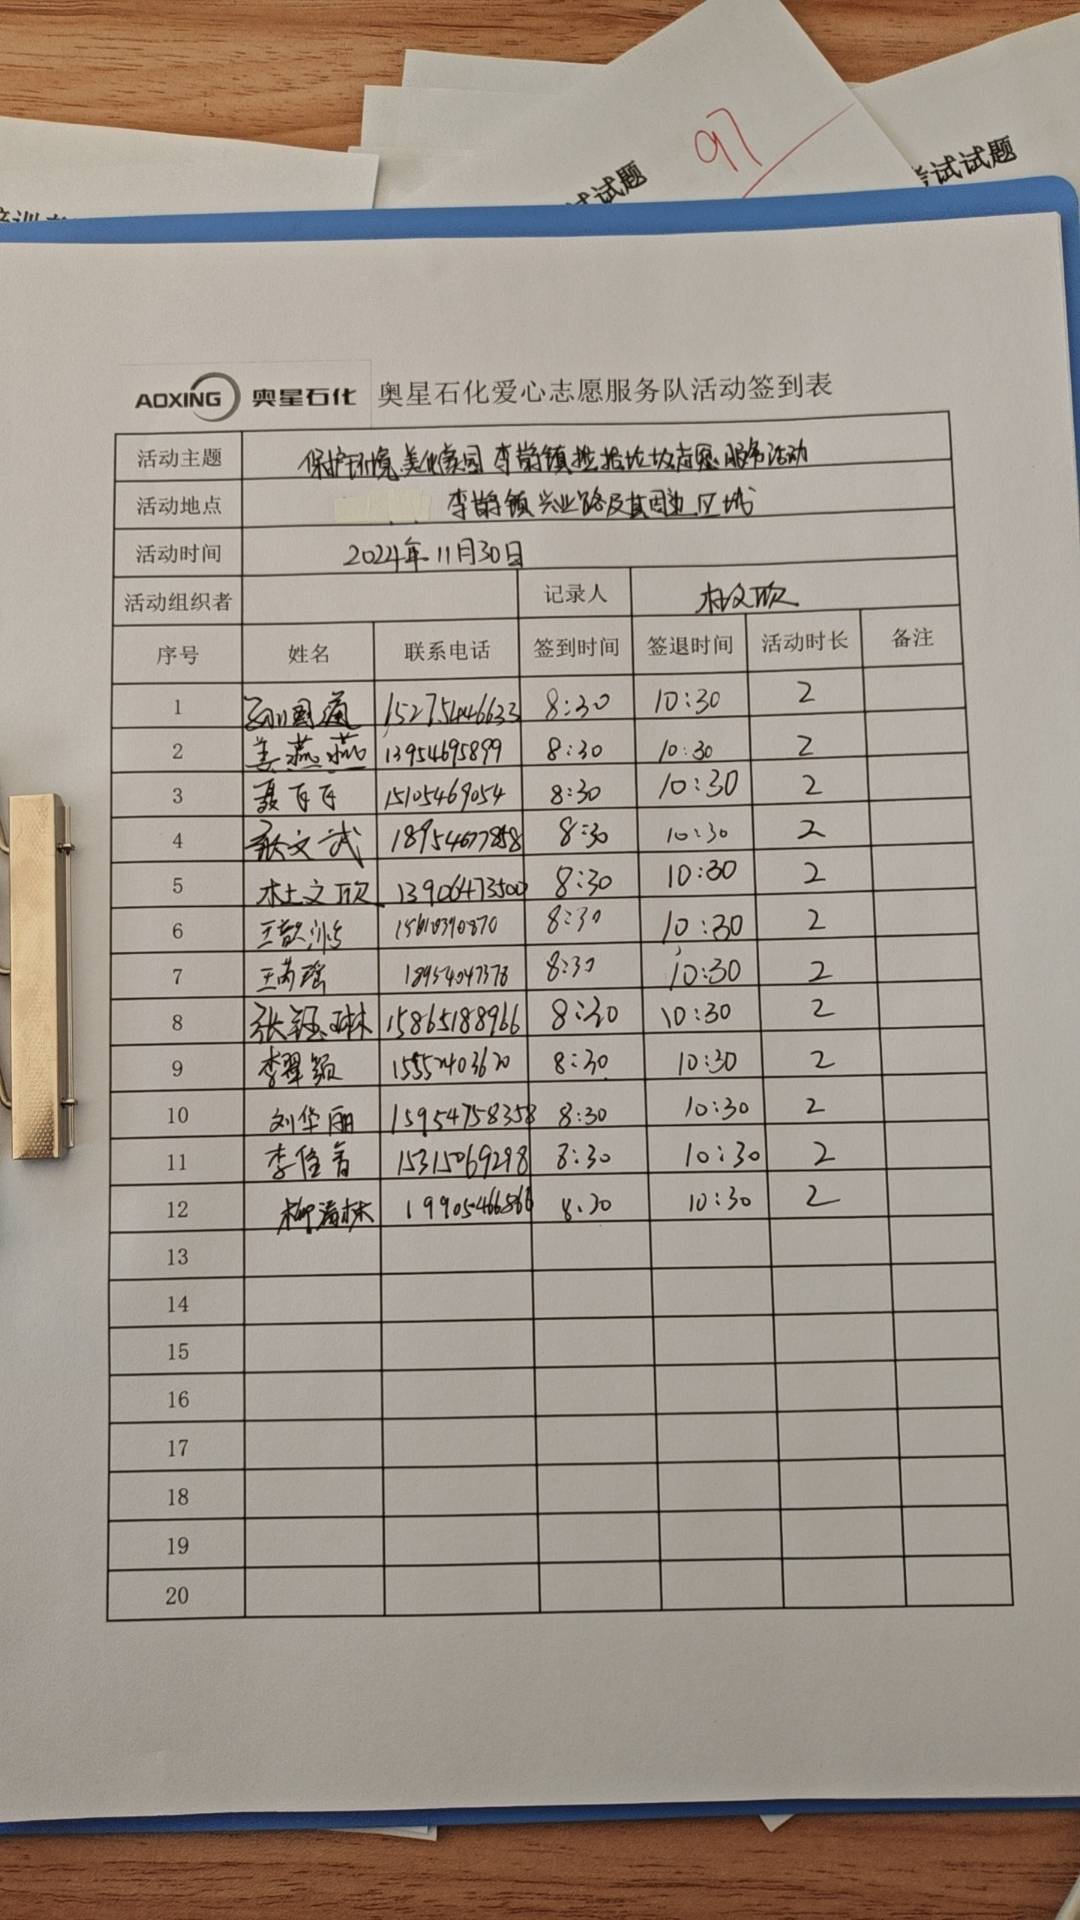 97
试试题
考试试题
培训考
AOXING 奥星石化 奥星石化爱心志愿服务队活动签到表
活动主题 保护环境 美化家园 李鹊镇捡拾垃圾志愿服务活动
活动地点 李鹊镇兴业路及其周边区域
活动时间 2024年11月30日
活动组织者 记录人 杜文欣
序号 姓名 联系电话 签到时间 签退时间 活动时长 备注
1 15275446633 8:30 10:30 2
2 姜燕燕 13954695899 8:30 10:30 2
3 聂百百 15105469054 8:30 10:30 2
4 张文武 18954677858 8:30 10:30 2
5 杜文欣 13906473500 8:30 10:30 2
6 8:30 10:30 2
7 8:30 10:30 2
8 张钰琳 15865188966 8:30 10:30 2
9 李翠颖 8:30 10:30 2
10 刘华丽 15954758358 8:30 10:30 2
11 李佳音 15315069298 8:30 10:30 2
12 8:30 10:30 2
13
14
15
16
17
18
19
20